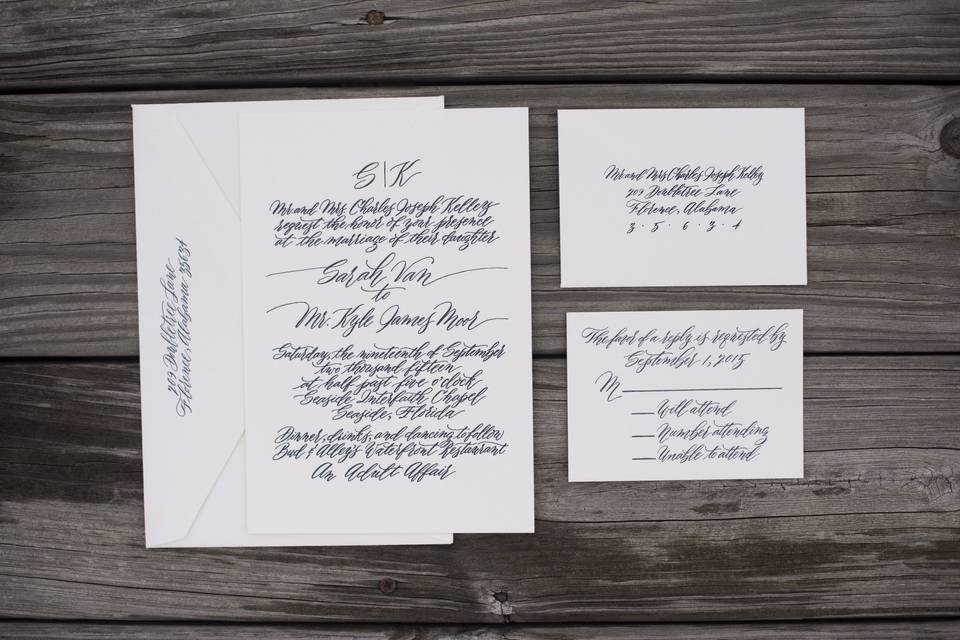 209 Doubletree Lane
Florence, Alabama 35634
S|K
Mr. and Mrs. Charles Joseph Kelley
request the honor of your presence
at the marriage of their daughter
Sarah Van
to
Mr. Kyle James Moor
Saturday, the nineteenth of September
two thousand fifteen
at half past five o'clock
Seaside Interfaith Chapel
Seaside, Florida
Dinner, drinks, and dancing to follow
Bud & Alley's Waterfront Restaurant
An Adult Affair
Mr. and Mrs. Charles Joseph Kelley
209 Doubletree Lane
Florence, Alabama
3 · 5 · 6 · 3 · 4
The favor of a reply is requested by
September 1, 2015
M
Will attend
Number attending
Unable to attend